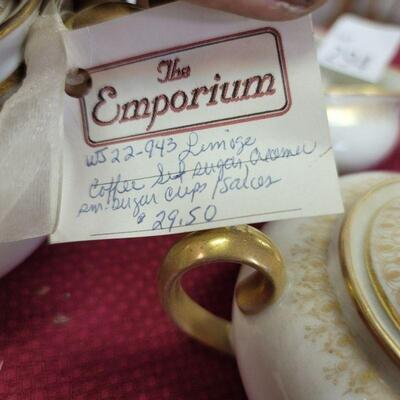 The
Emporium
WJ 22-943 Limoge
Coffee Set sugar Creamer
sm. sugar cups/saices
$ 29.50